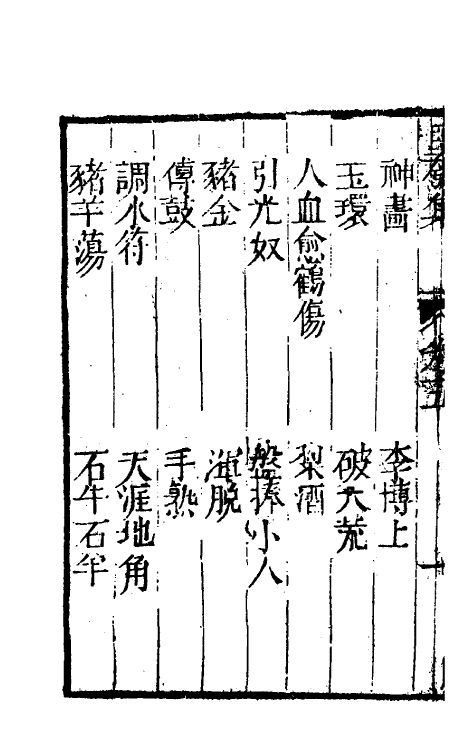 神畵　李博上
玉環　破天荒
人血愈鶴傷　梨酒
引光奴　盤捧小人
豬金　渾脫
傳鼓　手熟
調水符　天涯地角
豬羊蕩　石牛石羊